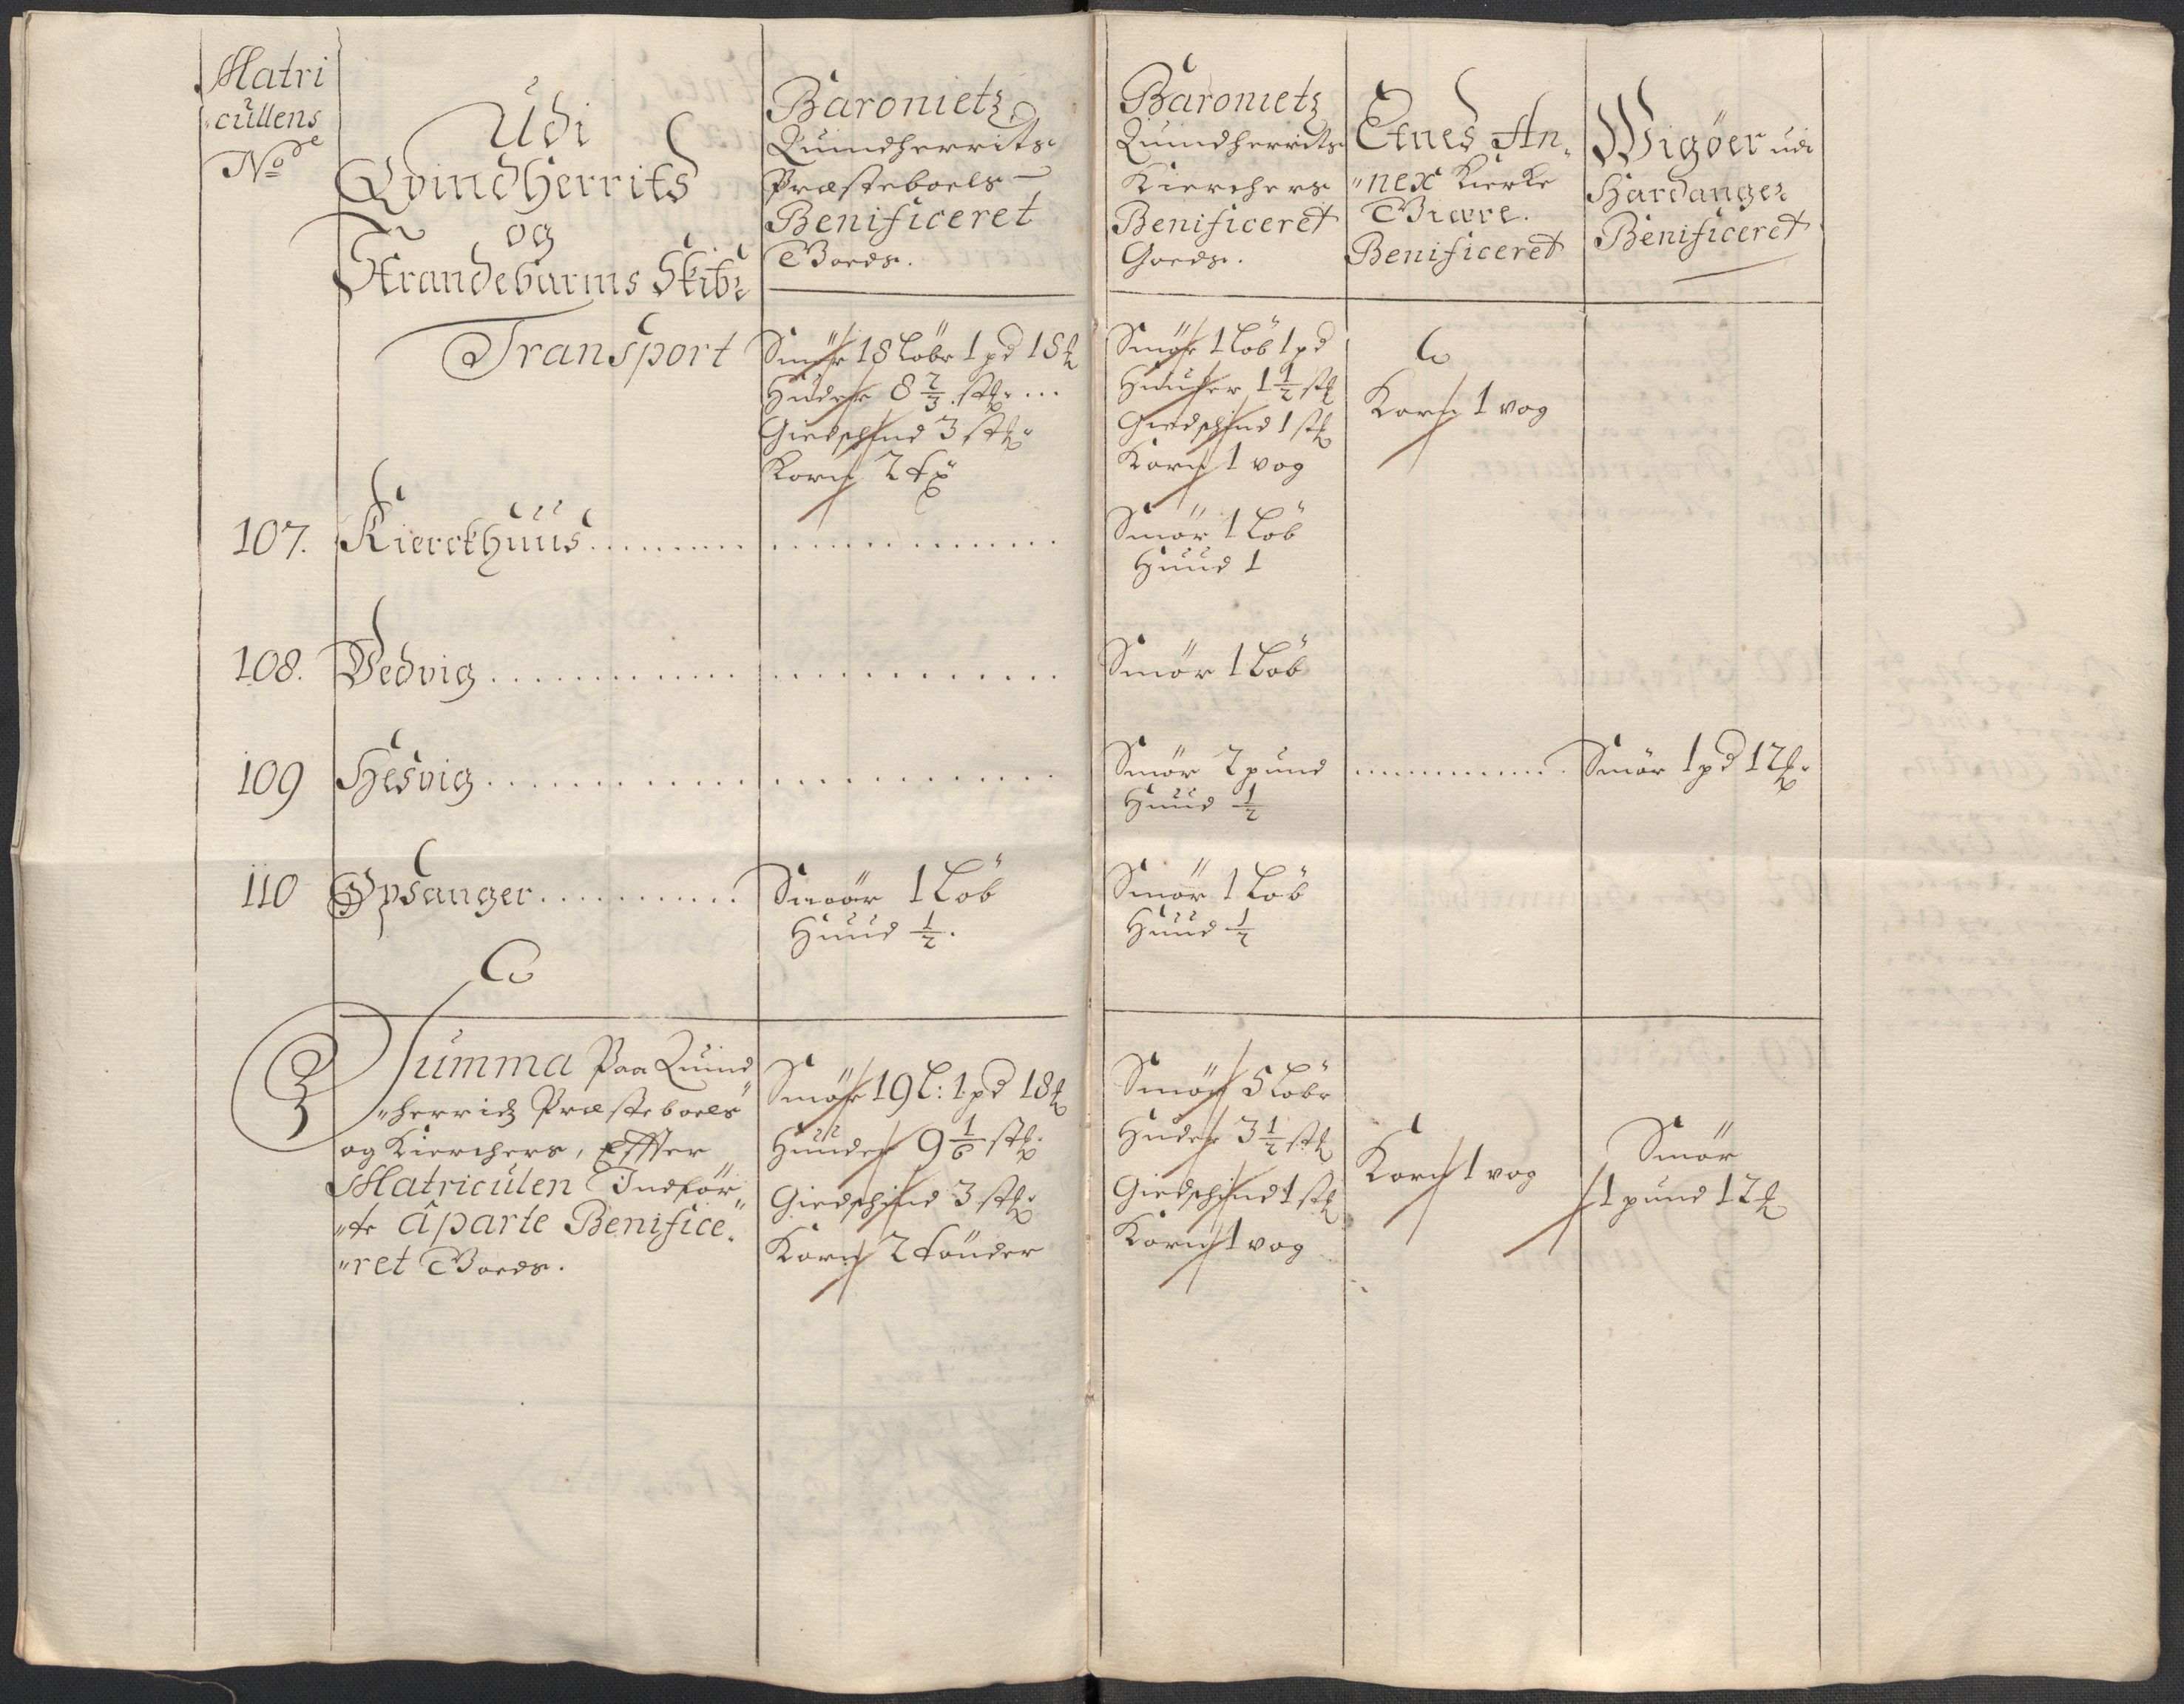 Matri
"cullens
No de
Udi
Qvindherrits
og
Strandebarms Skibr
Baronietz
Quindherrits
Præsteboels
Benificeret
Goeds.
Baronietz
Quindherrits
Kierchers
Benificeret
Goeds.
Etnes An„
"nex Kierke
Biere.
Benificeret
Wigøer udi
Hardanger
Benificeret
Transport
Smör 18 Löbr 1 pd 18 ℔
Huder 8 2/3 stk. ...
Giedschind 3 stk.
Korn 2 tr
Smör 1 Löb 1 pd
Huuder 1 1/2 stk
Giedschind 1 stk
Korn 1 vog
Korn 1 vog
107. Kierckhuus ........
Smör 1 Löb
Huud 1
108. Vedvig ........
Smör 1 Löb
109 Hesvig ........
Smör 2 pund ........ Smör 1 pd 12 ℔.
Huud 1/2
110 Opsanger ........ Smöör 1 Löb
Huud 1/2.
Smör 1 Löb
Huud 1/2
Summa Paa Quind
"herridz Præsteboels
og Kierchers, Effter
Matriculen Indför„
"te aparte Benifice„
"ret Goeds.
Smör 19 L: 1 pd 18 ℔
Huuder 9 1/6 stk.
Giedschind 3 stk.
Korn 2 tönder
Smör 5 Löbr
Huder 3 1/2 stk
Giedschind 1 stk
Korn 1 vog
Korn 1 vog
Smör
1 pund 12 ℔